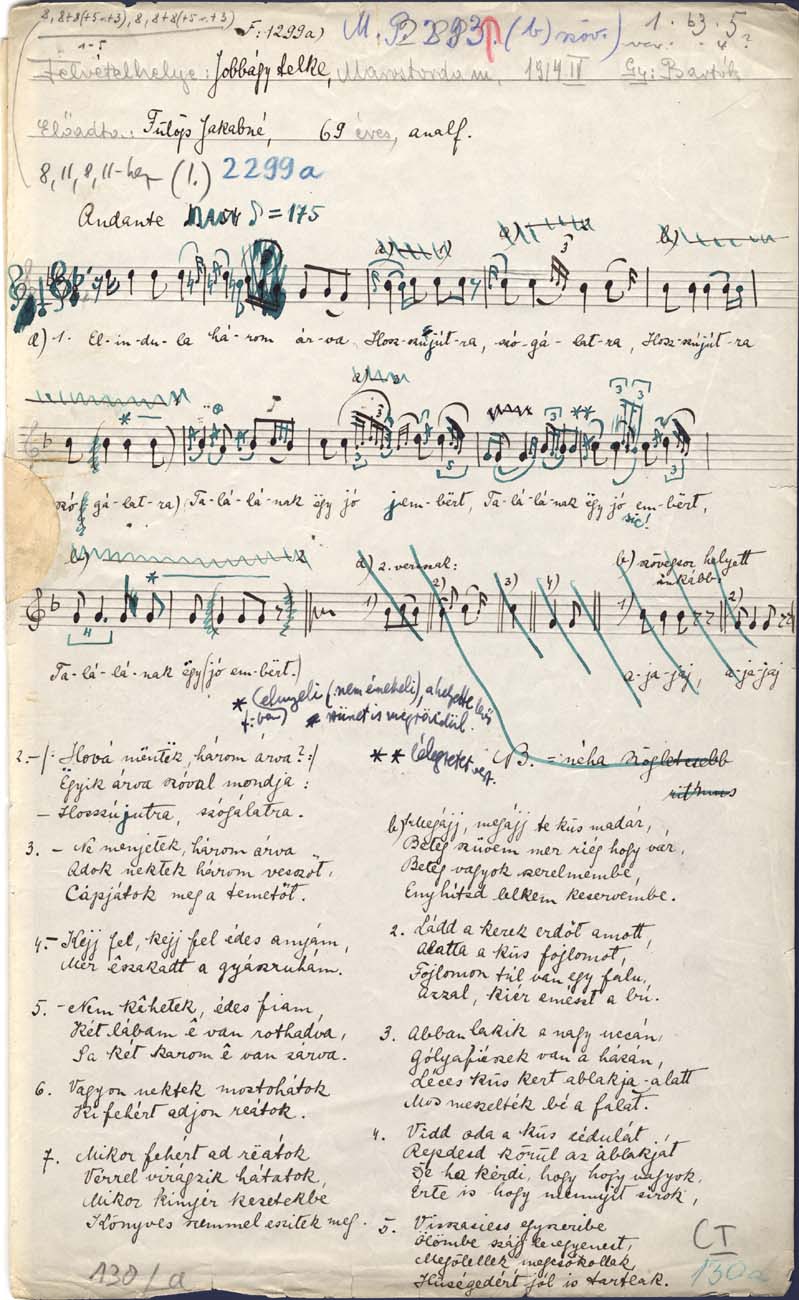 8, 8+8(+5v.+3), 8, 8+8(+5v.+3)
1-5
F: 1299a)
(b) szöv.)
1. 63. 5
var.
Felvételhelye: Jobbágytelke, Marostorda m. 1914 IV Gy: Bartók
Előadta: Fülöp Jakabné, 69 éves, analf.
8, 11, 8, 11-
(1.) 2299a
Andante ♪ = 175
a) 1. El-in-du-la há-rom ár-va Hosz-szújút-ra, szó-gá-lat-ra, Hosz-szújút-ra
szó-gá-lat-ra) Ta-lá-lá-nak ëgy jó jem-bërt, Ta-lá-lá-nak ëgy jó em-bërt,
sic!
a) 2. versnak:
b) szövegsor helyett inkább:
1) 2) 3) 4) 1) 2)
Ta-lá-lá-nak ëgy (jó em-bërt.)
a-ja-jaj, a-ja-jaj
* (elnyeli (nem énekeli), ahelyett
szünet is megrövidül.
** lélegzetet vesz.
NB. = néha szögletesebb
rithmus
2. – /: Hová mëntëk, három árva? :/
Ëgyik árva szóval mondja:
– Hosszújutra, szógálatra.
3. – Ne menjetek, három árva
Adok nektek három vesszőt,
Cápjátok meg a temetőt.
4. – Kejj fel, kejj fel édes anyám,
Mer êszakadt a gyászruhám.
5. – Nem kêhetek, édes fiam,
Két lábam ê van rothadva,
Sa két karom ê van zárva.
6. Vagyon nektek mostohátok
Ki fehért adjon reátok.
7. Mikor fehért ad rëátok
Vérrel virágzik hátatok,
Mikor kinyér kezetekbe
Könyves szemmel eszitëk meg.
b) Megájj, megájj te küs madár,
Beteg szüvem mer rieg hogy vár,
Beteg vagyok szerelmembe,
Enyhítsd lelkem keservembe.
2. Ládd a kerek erdőt amott,
Alatta a küs fojlomot,
Fojlomon túl van egy falu,
Azzal, kiér emészt a bú.
3. Abban lakik a nagy uccán,
Gólyafiészek van a házán,
Léces küs kert ablakja alatt
Mos meszelték bé a falat.
4. Vidd oda a küs zédulát
Repdesd körül az ablakját
De ha kérdi, hogy hogy vagyok,
Érte is hogy mennyit sirok,
5. Visszasiess egyszeribe
Ölömbe szájj le egyenest,
Megölellek megcsókollak
Hüségedért jól is tartlak.
CI
130/a
130a